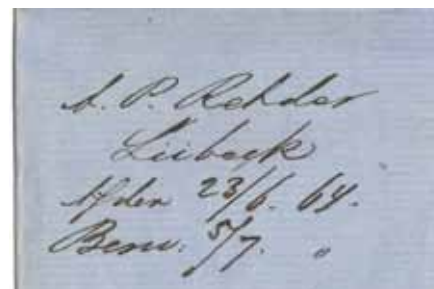 A. P. Rehder
Lübeck
Afsen 23/6. 64.
Besv. 5/7. "